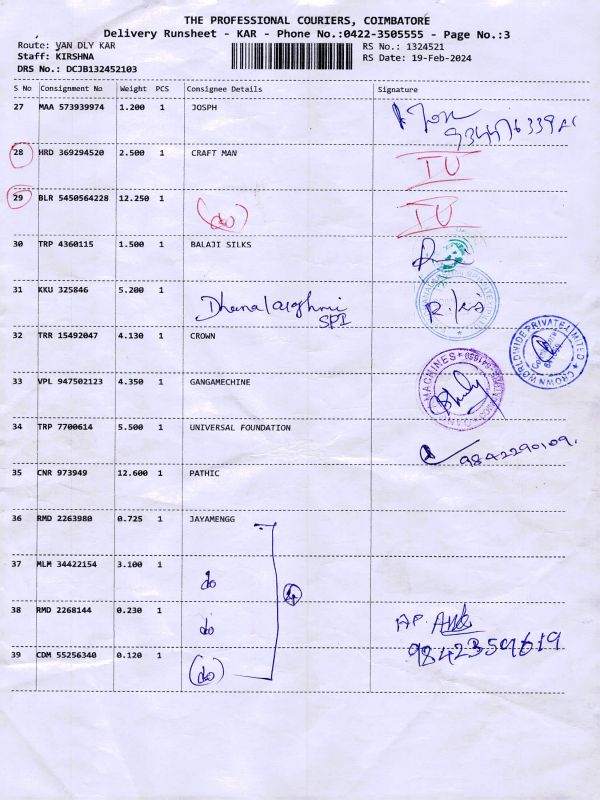 THE PROFESSIONAL COURIERS, COIMBATORE
Delivery Runsheet - KAR - Phone No.:0422-3505555 - Page No.:3
Route: VAN DLY KAR RS No.: 1324521
Staff: KIRSHNA RS Date: 19-Feb-2024
DRS No.: DCJB132452103
S No Consignment No Weight PCS Consignee Details Signature
27 MAA 573939974 1.200 1 JOSPH
28 HRD 369294520 2.500 1 CRAFT MAN IU
29 BLR 5450564228 12.250 1 (do) IU
30 TRP 4360115 1.500 1 BALAJI SILKS
31 KKU 325846 5.200 1 Dhanalakshmi
SPI
32 TRR 15492047 4.130 1 CROWN
CROWN WORLDWIDE PRIVATE LIMITED
33 VPL 947502123 4.350 1 GANGAMECHINE
MACHINES
34 TRP 7700614 5.500 1 UNIVERSAL FOUNDATION 9842290109
35 CNR 973949 12.600 1 PATHIC
36 RMD 2263980 0.725 1 JAYAMENGG
37 MLM 34422154 3.100 1 do
4
38 RMD 2268144 0.230 1 do
39 CDM 55256340 0.120 1 (do) 9842359619